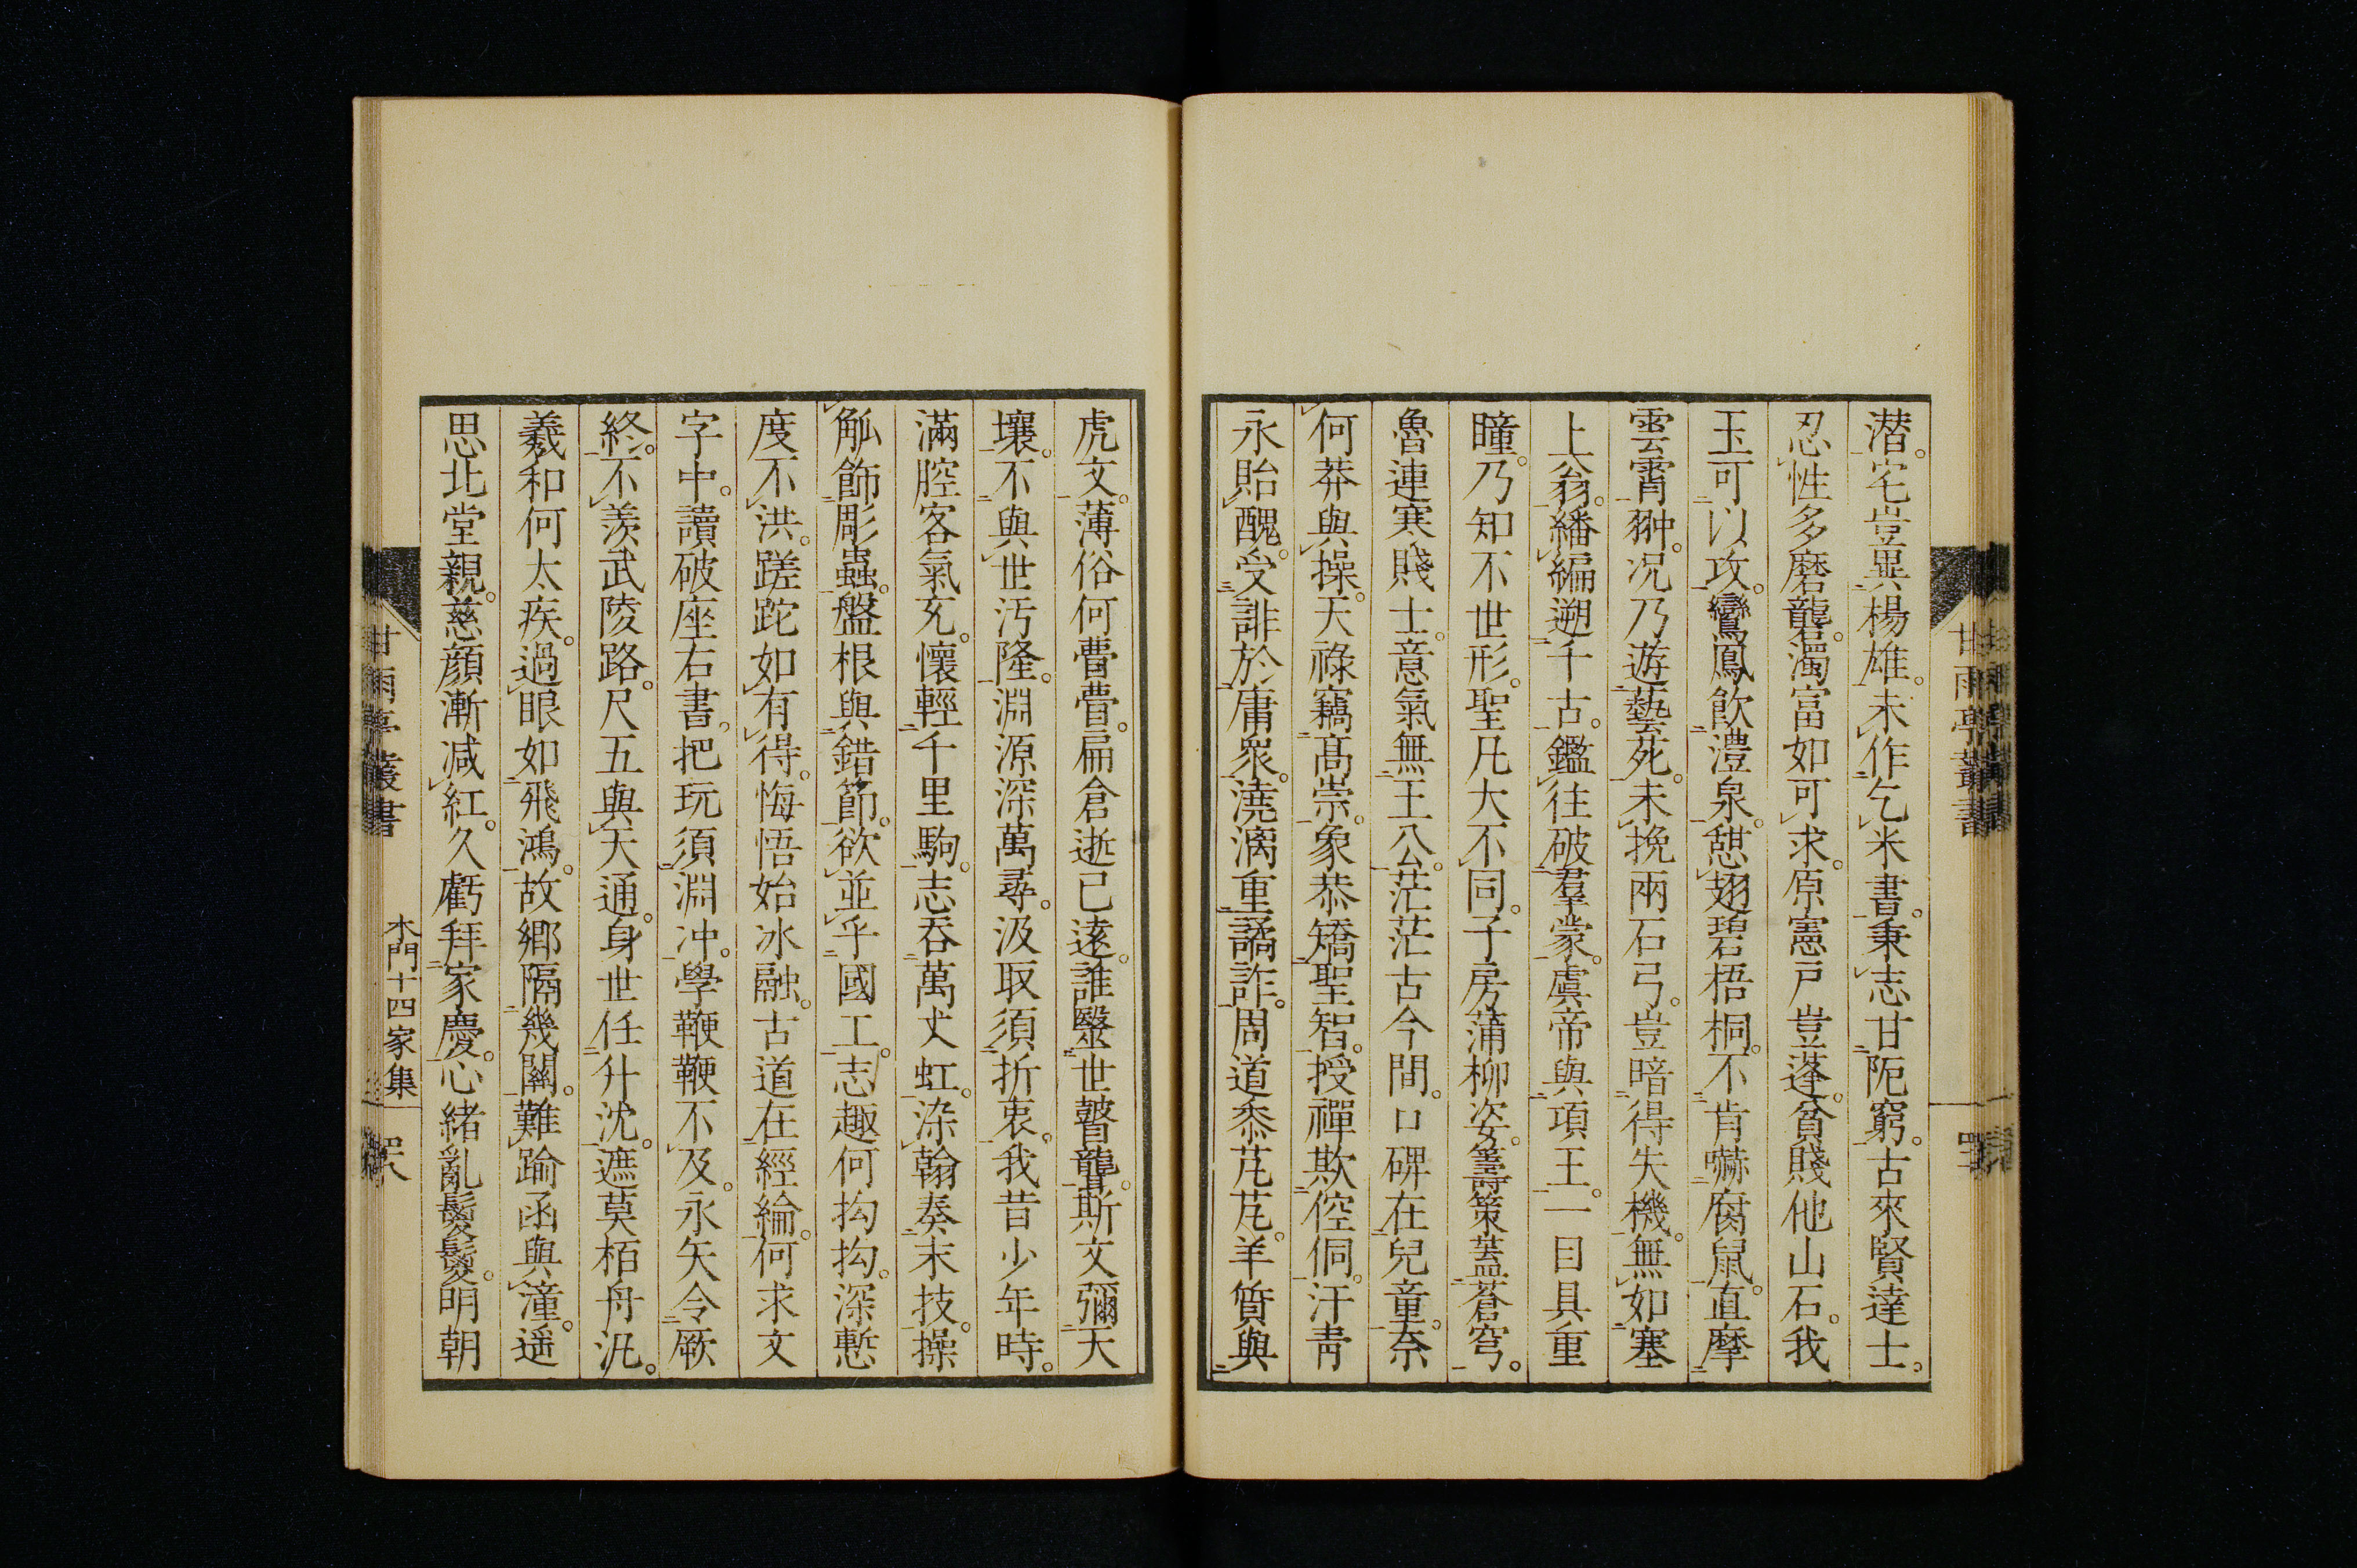 潜。宅豈異楊雄。未作乞米書。秉志甘阨窮。古來賢達士。
忍性多磨礲。濁富如可求。原憲戸豈蓬。貧賤他山石。我
玉可以攻。鸞鳳飲澧泉。憇翅碧梧桐。不肯嚇腐鼠。直摩
雲霄翀。况乃遊藝苑。未挽兩石弓。豈暗得失機。無如塞
上翁。繙編遡千古。鑑往破羣蒙。虞帝與項王。一目具重
瞳。乃知不世形。聖凡大不同。子房蒲柳姿。籌策蓋蒼穹。
魯連寒賤士。意氣無王公。茫茫古今間。口碑在兒童。奈
何莽與操。天祿竊髙崇。象恭矯聖智。授禪欺倥侗。汗青
永貽醜。受誹於庸衆。澆漓重譎詐。周道黍芃芃。羊質與
虎文。薄俗何瞢瞢。扁倉逝已遠。誰醫世瞽聾。斯文彌天
壤。不與世汚隆。淵源深萬尋。汲取須折衷。我昔少年時。
滿腔客氣充。懷輕千里駒。志呑萬丈虹。染翰奏末技。操
觚飾彫蟲。盤根與錯節。欲並乎國工。志趣何拘拘。深慙
度不洪。蹉跎如有得。悔悟始冰融。古道在經綸。何求文
字中。讀破座右書。把玩須淵冲。學鞭鞭不及。永矢令厥
終。不羨武陵路。尺五與天通。身世任升沈。遮莫栢舟汎。
羲和何太疾。過眼如飛鴻。故鄉隔幾關。難踰函與潼。遥
思北堂親。慈顔漸减紅。久虧拜家慶。心緒亂鬉鬉。明朝
甘雨亭叢書
甘雨亭叢書 木門十四家集